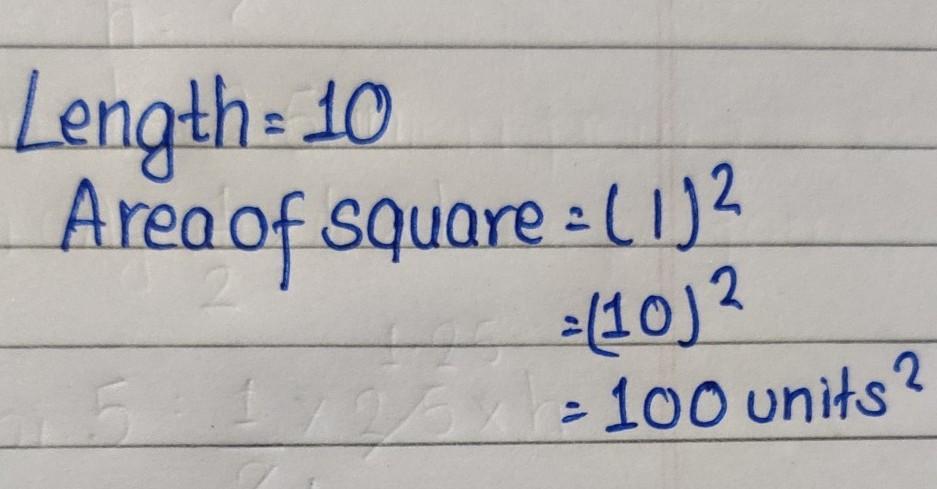 Length = 10
Area of square = (l)²
= (10)²
= 100 units²